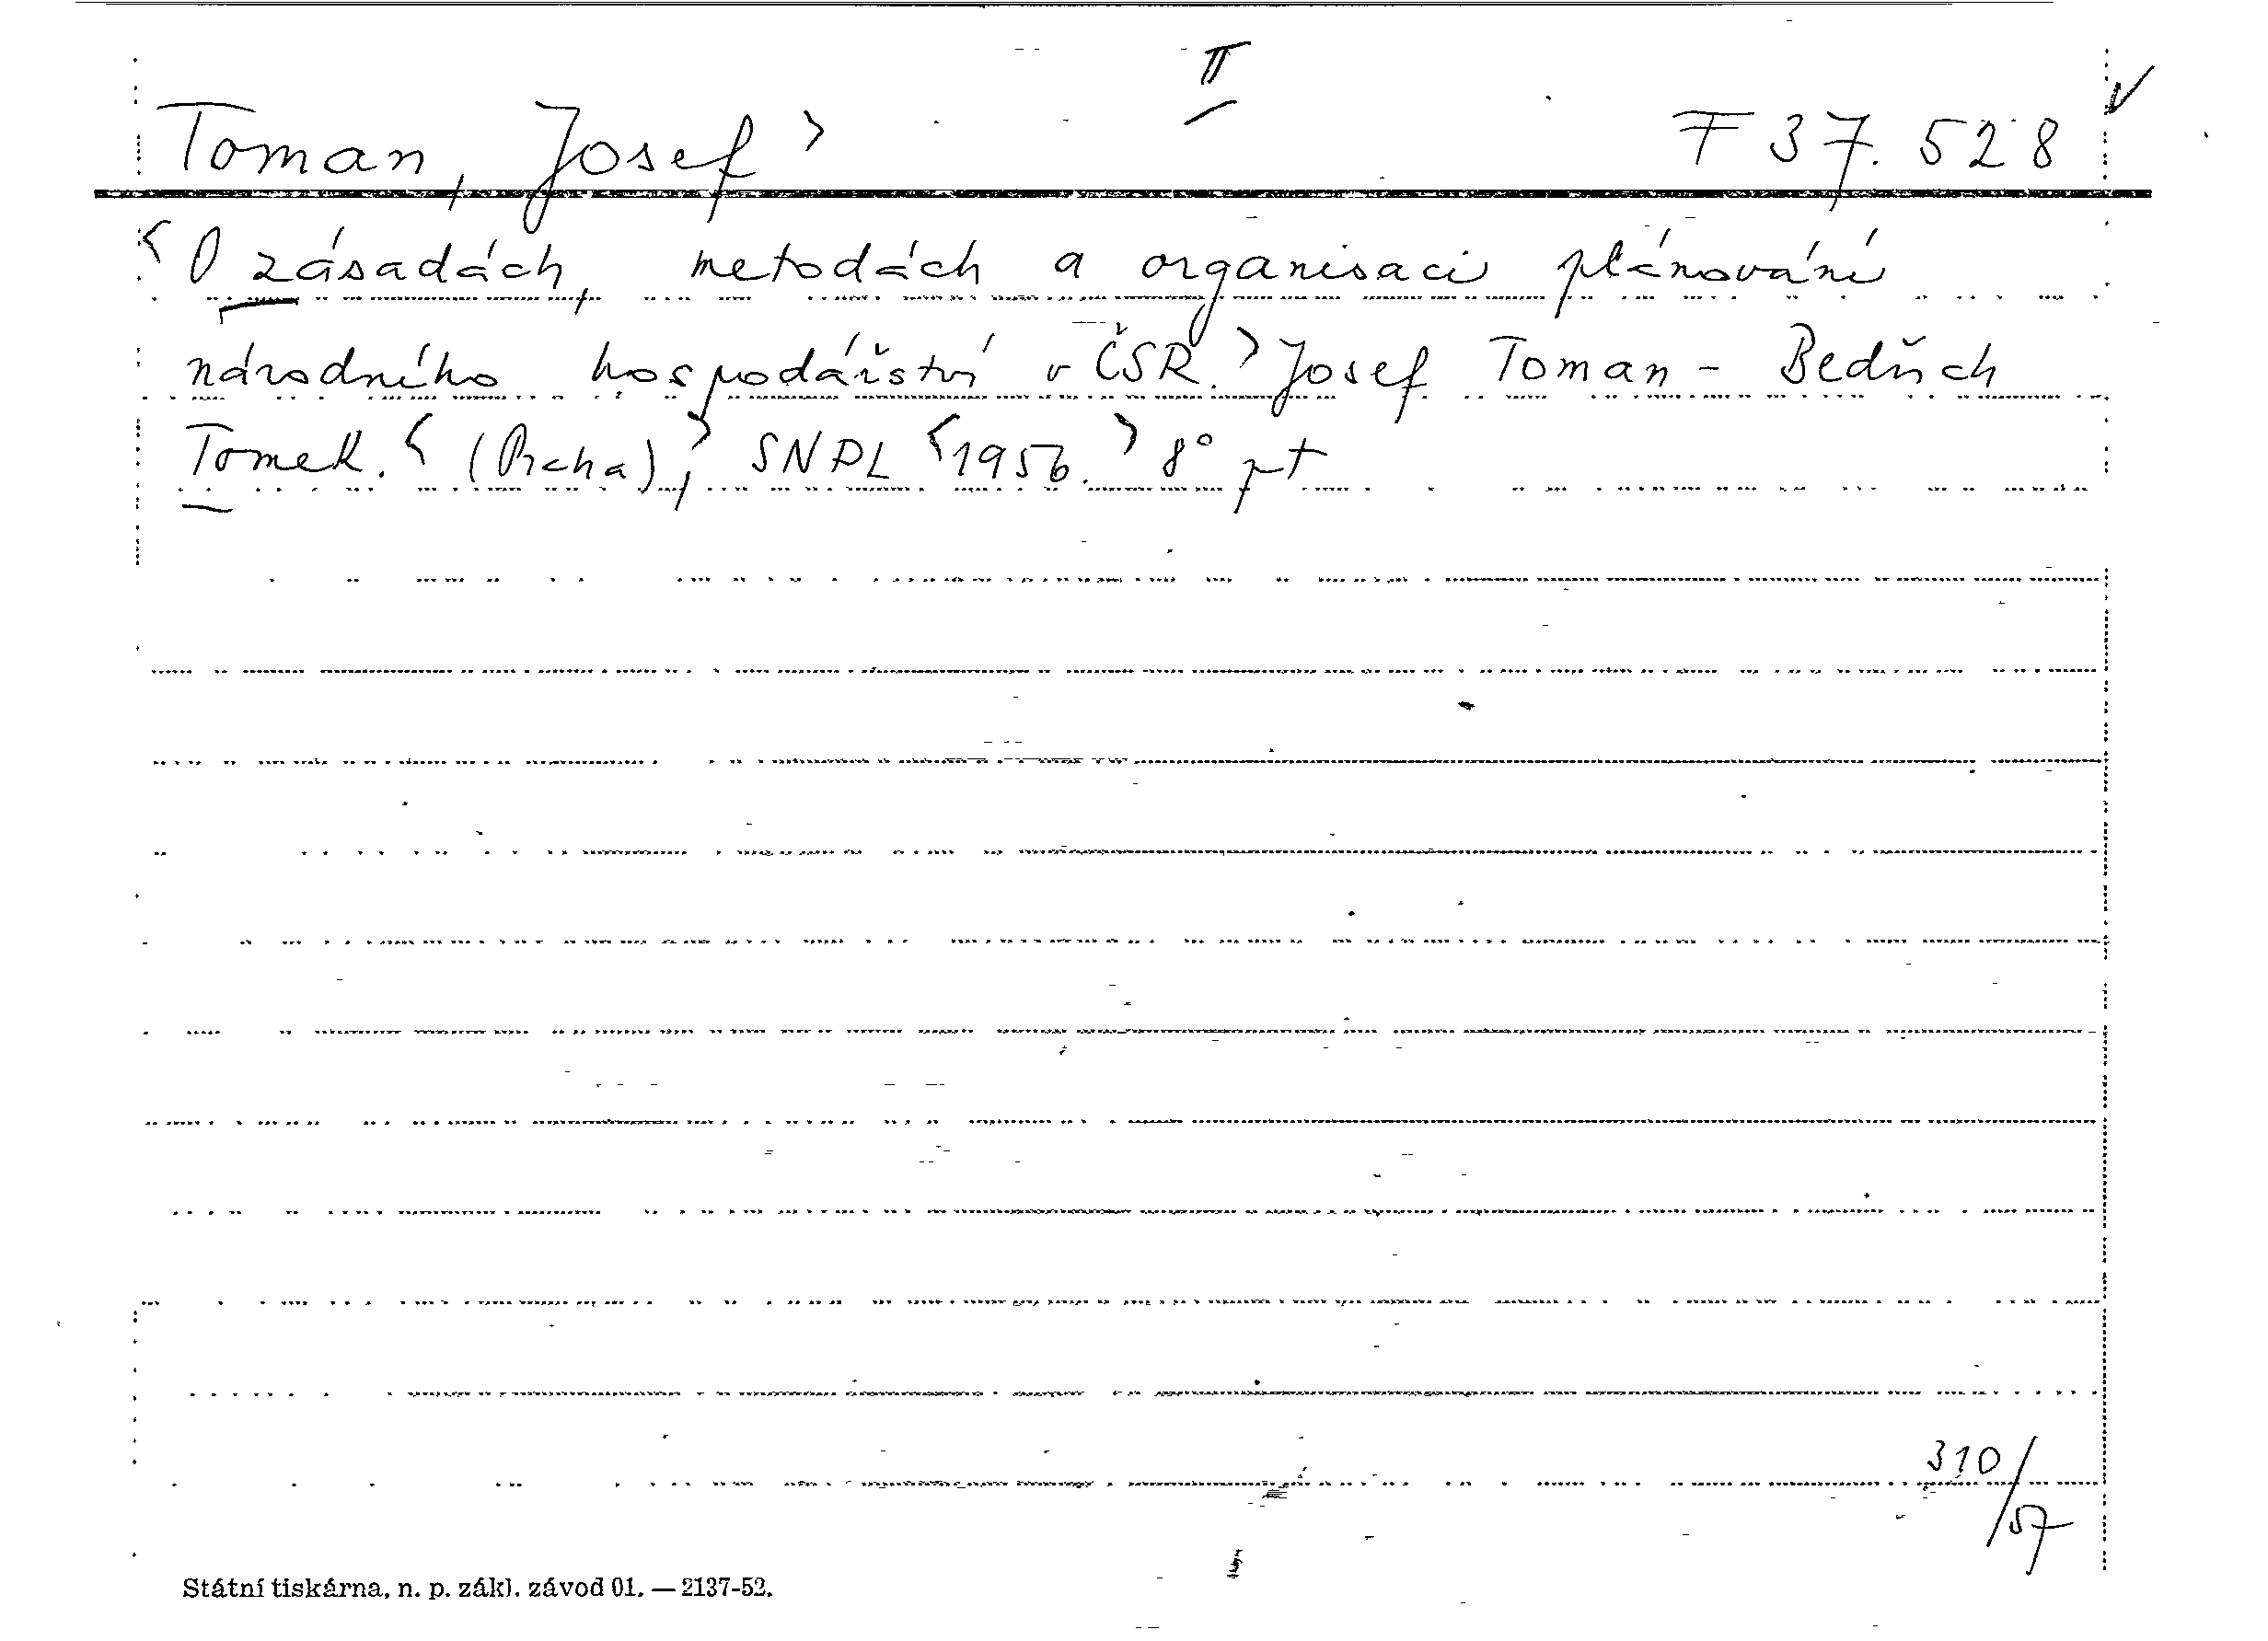 II
Toman, Josef> F 37.528 ✓
<O zásadách, metodách a organisaci plánování
národního hospodářství v ČSR.> Josef Toman - Bedřich
Tomek. <(Praha),> SNPL <1956.> 8° pt
310/57
Státní tiskárna, n. p. zákl. závod 01. — 2137-52.